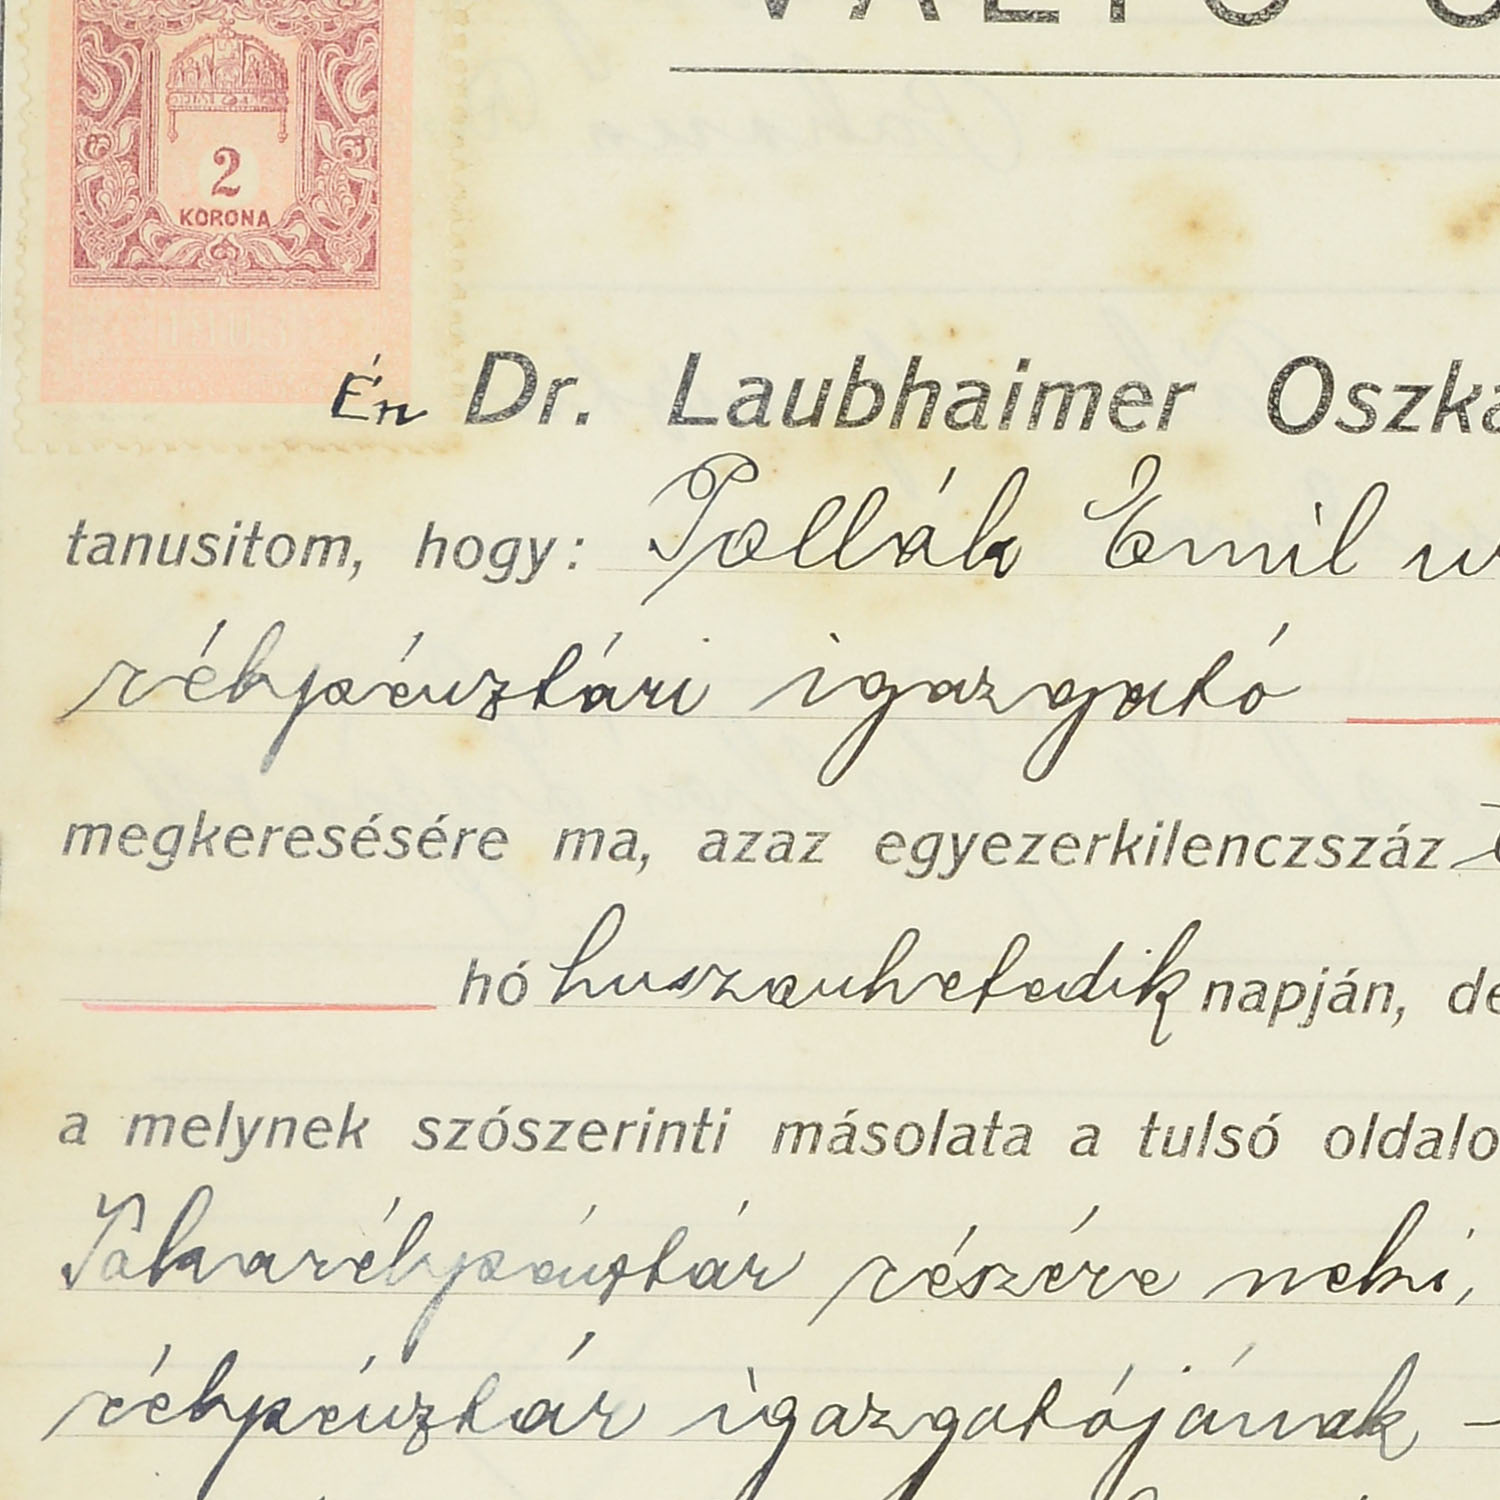 VÁLTÓ
2
KORONA
Én Dr. Laubhaimer Oszká
tanusitom, hogy: Pollák Emil
rékpénztári igazgató
megkeresésére ma, azaz egyezerkilenczszáz
hó huszonhetedik napján, de
a melynek szószerinti másolata a tulsó oldalo
Takarékpénztár részére neki,
rékpénztár igazgatójának –